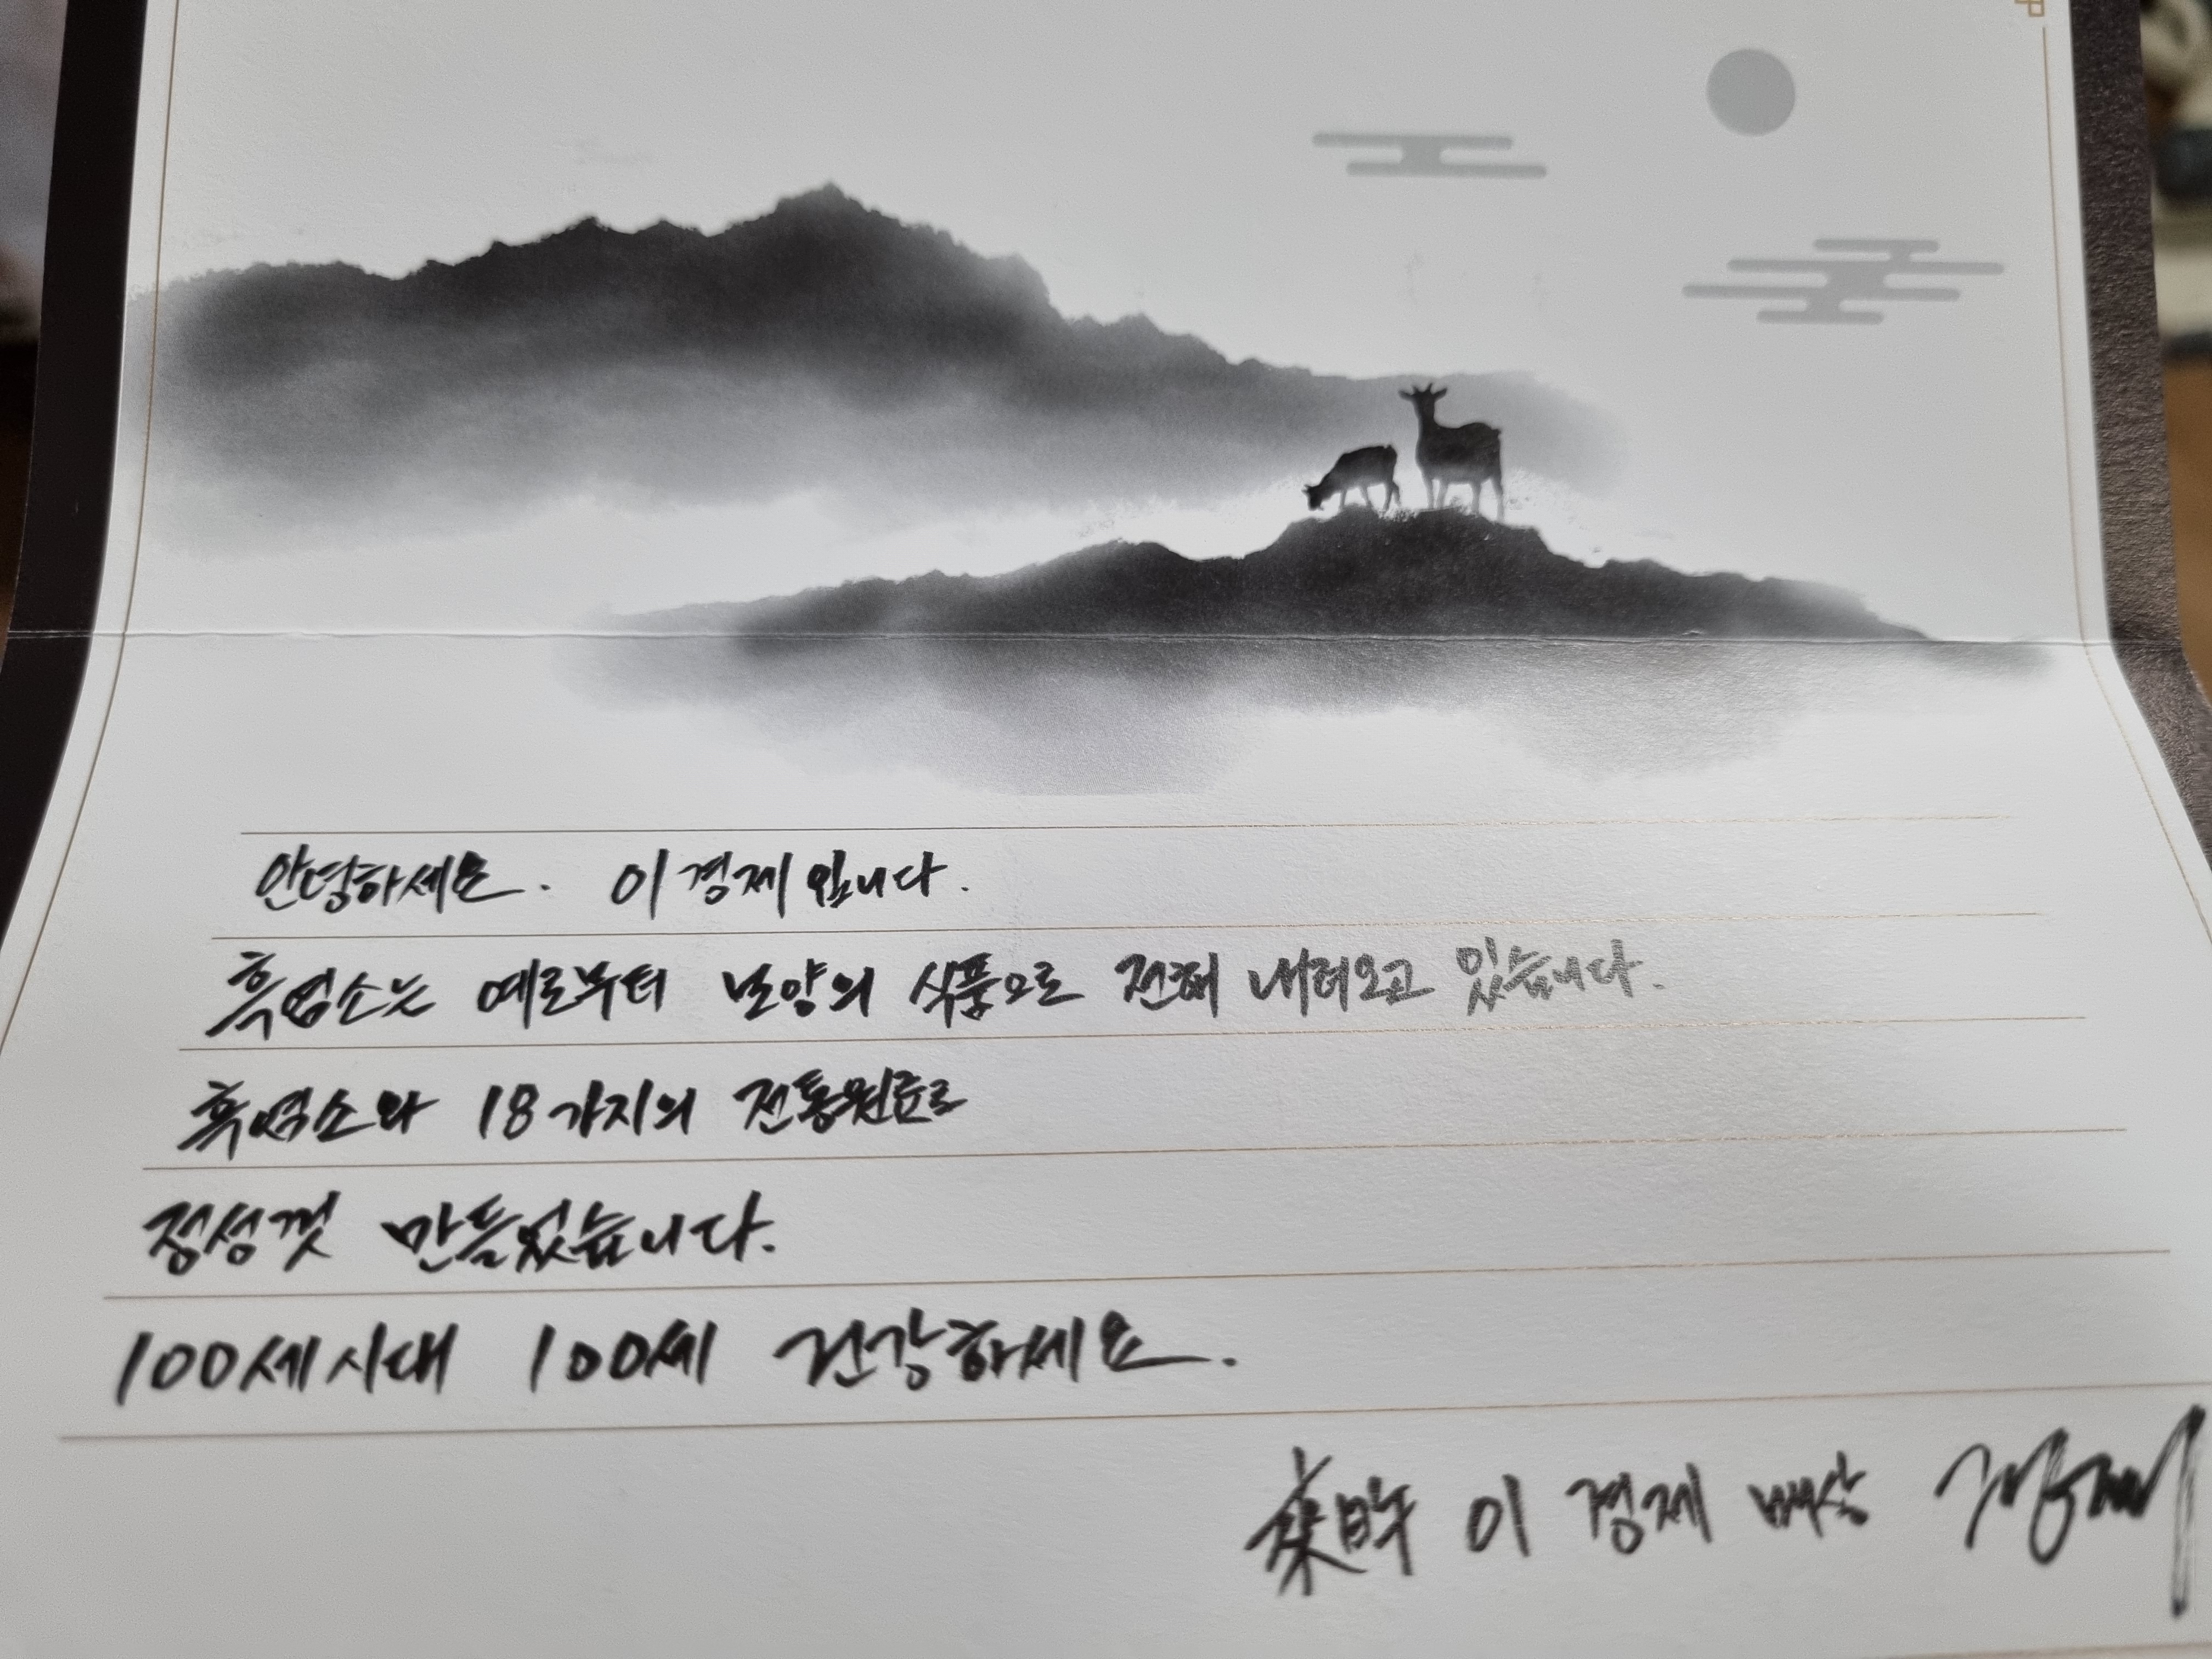 안녕하세요. 이경제입니다.
흑염소는 예로부터 보양의 식품으로 전해 내려오고 있습니다.
흑염소와 18가지의 전통원료로
정성껏 만들었습니다.
100세시대 100세 건강하세요.
이경제 배상